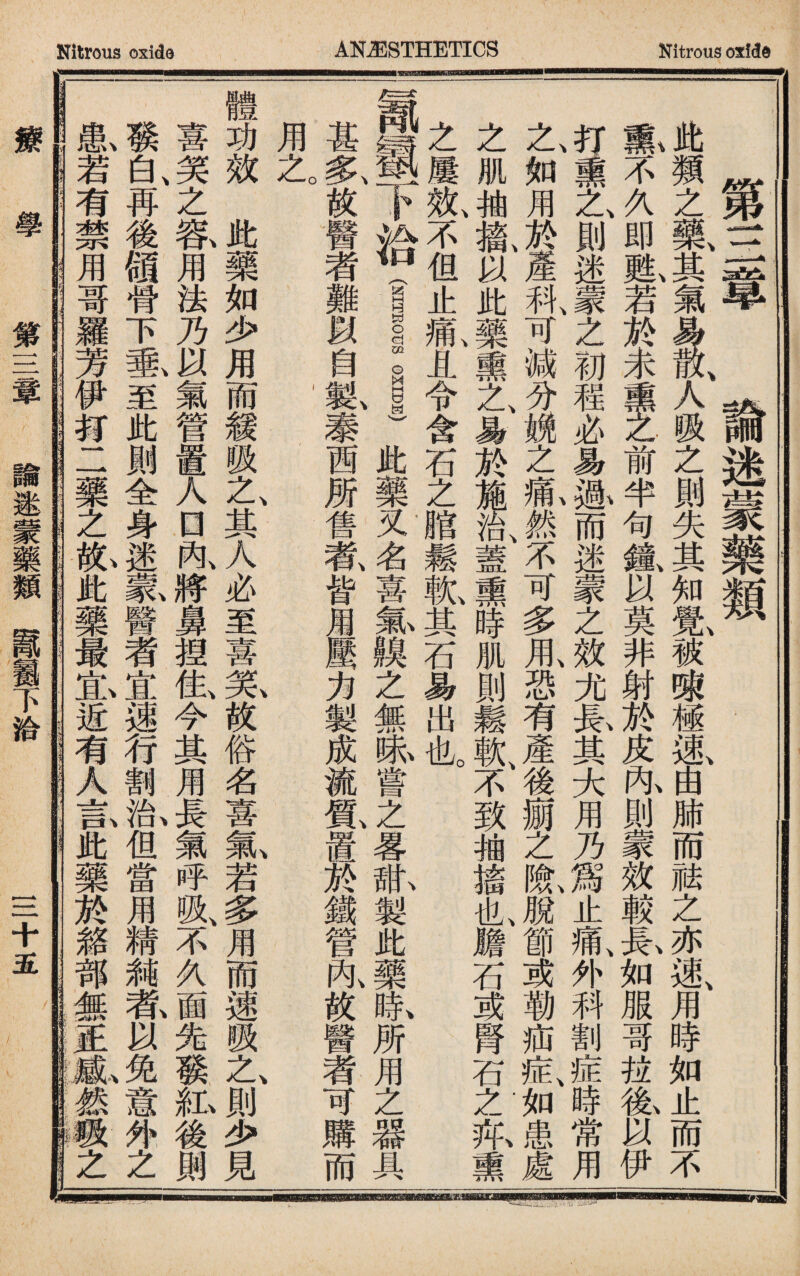 Nitrous oxide
ANÆSTHETICS
Nitrous oxide
第三章 論迷蒙藥類
此類之藥、其氣易散、人吸之則失其知覺、被㗢極速、由肺而祛之亦速、用時如止而不
熏、不久即甦、若於未熏之前半句鐘、以莫非射於皮內、則蒙效較長、如服哥拉後、以伊
打熏之、則迷蒙之初程必易過、而迷蒙之效尤長、其大用乃爲止痛、外科割症時常用
之、如用於產科、可減分娩之痛、然不可多用、恐有產後痭之險、脫節或勒疝症、如患處
之肌抽搐、以此藥熏之、易於施治、蓋熏時肌則鬆軟、不致抽搐也、膽石或腎石之痳、熏
之屢效、不但止痛、且令含石之腤鬆軟、其石易出也。
下治 (NITROUS OXIDE) 此藥又名喜氣、齅之無味、嘗之畧甜、製此藥時、所用之器具
甚多、故醫者難以自製、泰西所售者、皆用壓力製成流質、置於鐵管內、故醫者可購而
用之。
體功效 此藥如少用而緩吸之、其人必至喜笑、故俗名喜氣、若多用而速吸之、則少見
喜笑之容、用法乃以氣管置人口內、將鼻揑住、令其用長氣呼吸、不久面先發紅、後則
發白、再後頷骨下垂、至此則全身迷蒙、醫者宜速行割治、但當用精純者、以免意外之
患、若有禁用哥羅芳伊打二藥之故、此藥最宜、近有人言、此藥於絡部無正感、然吸之
療學 第三章 論迷蒙藥類 下治 三十五